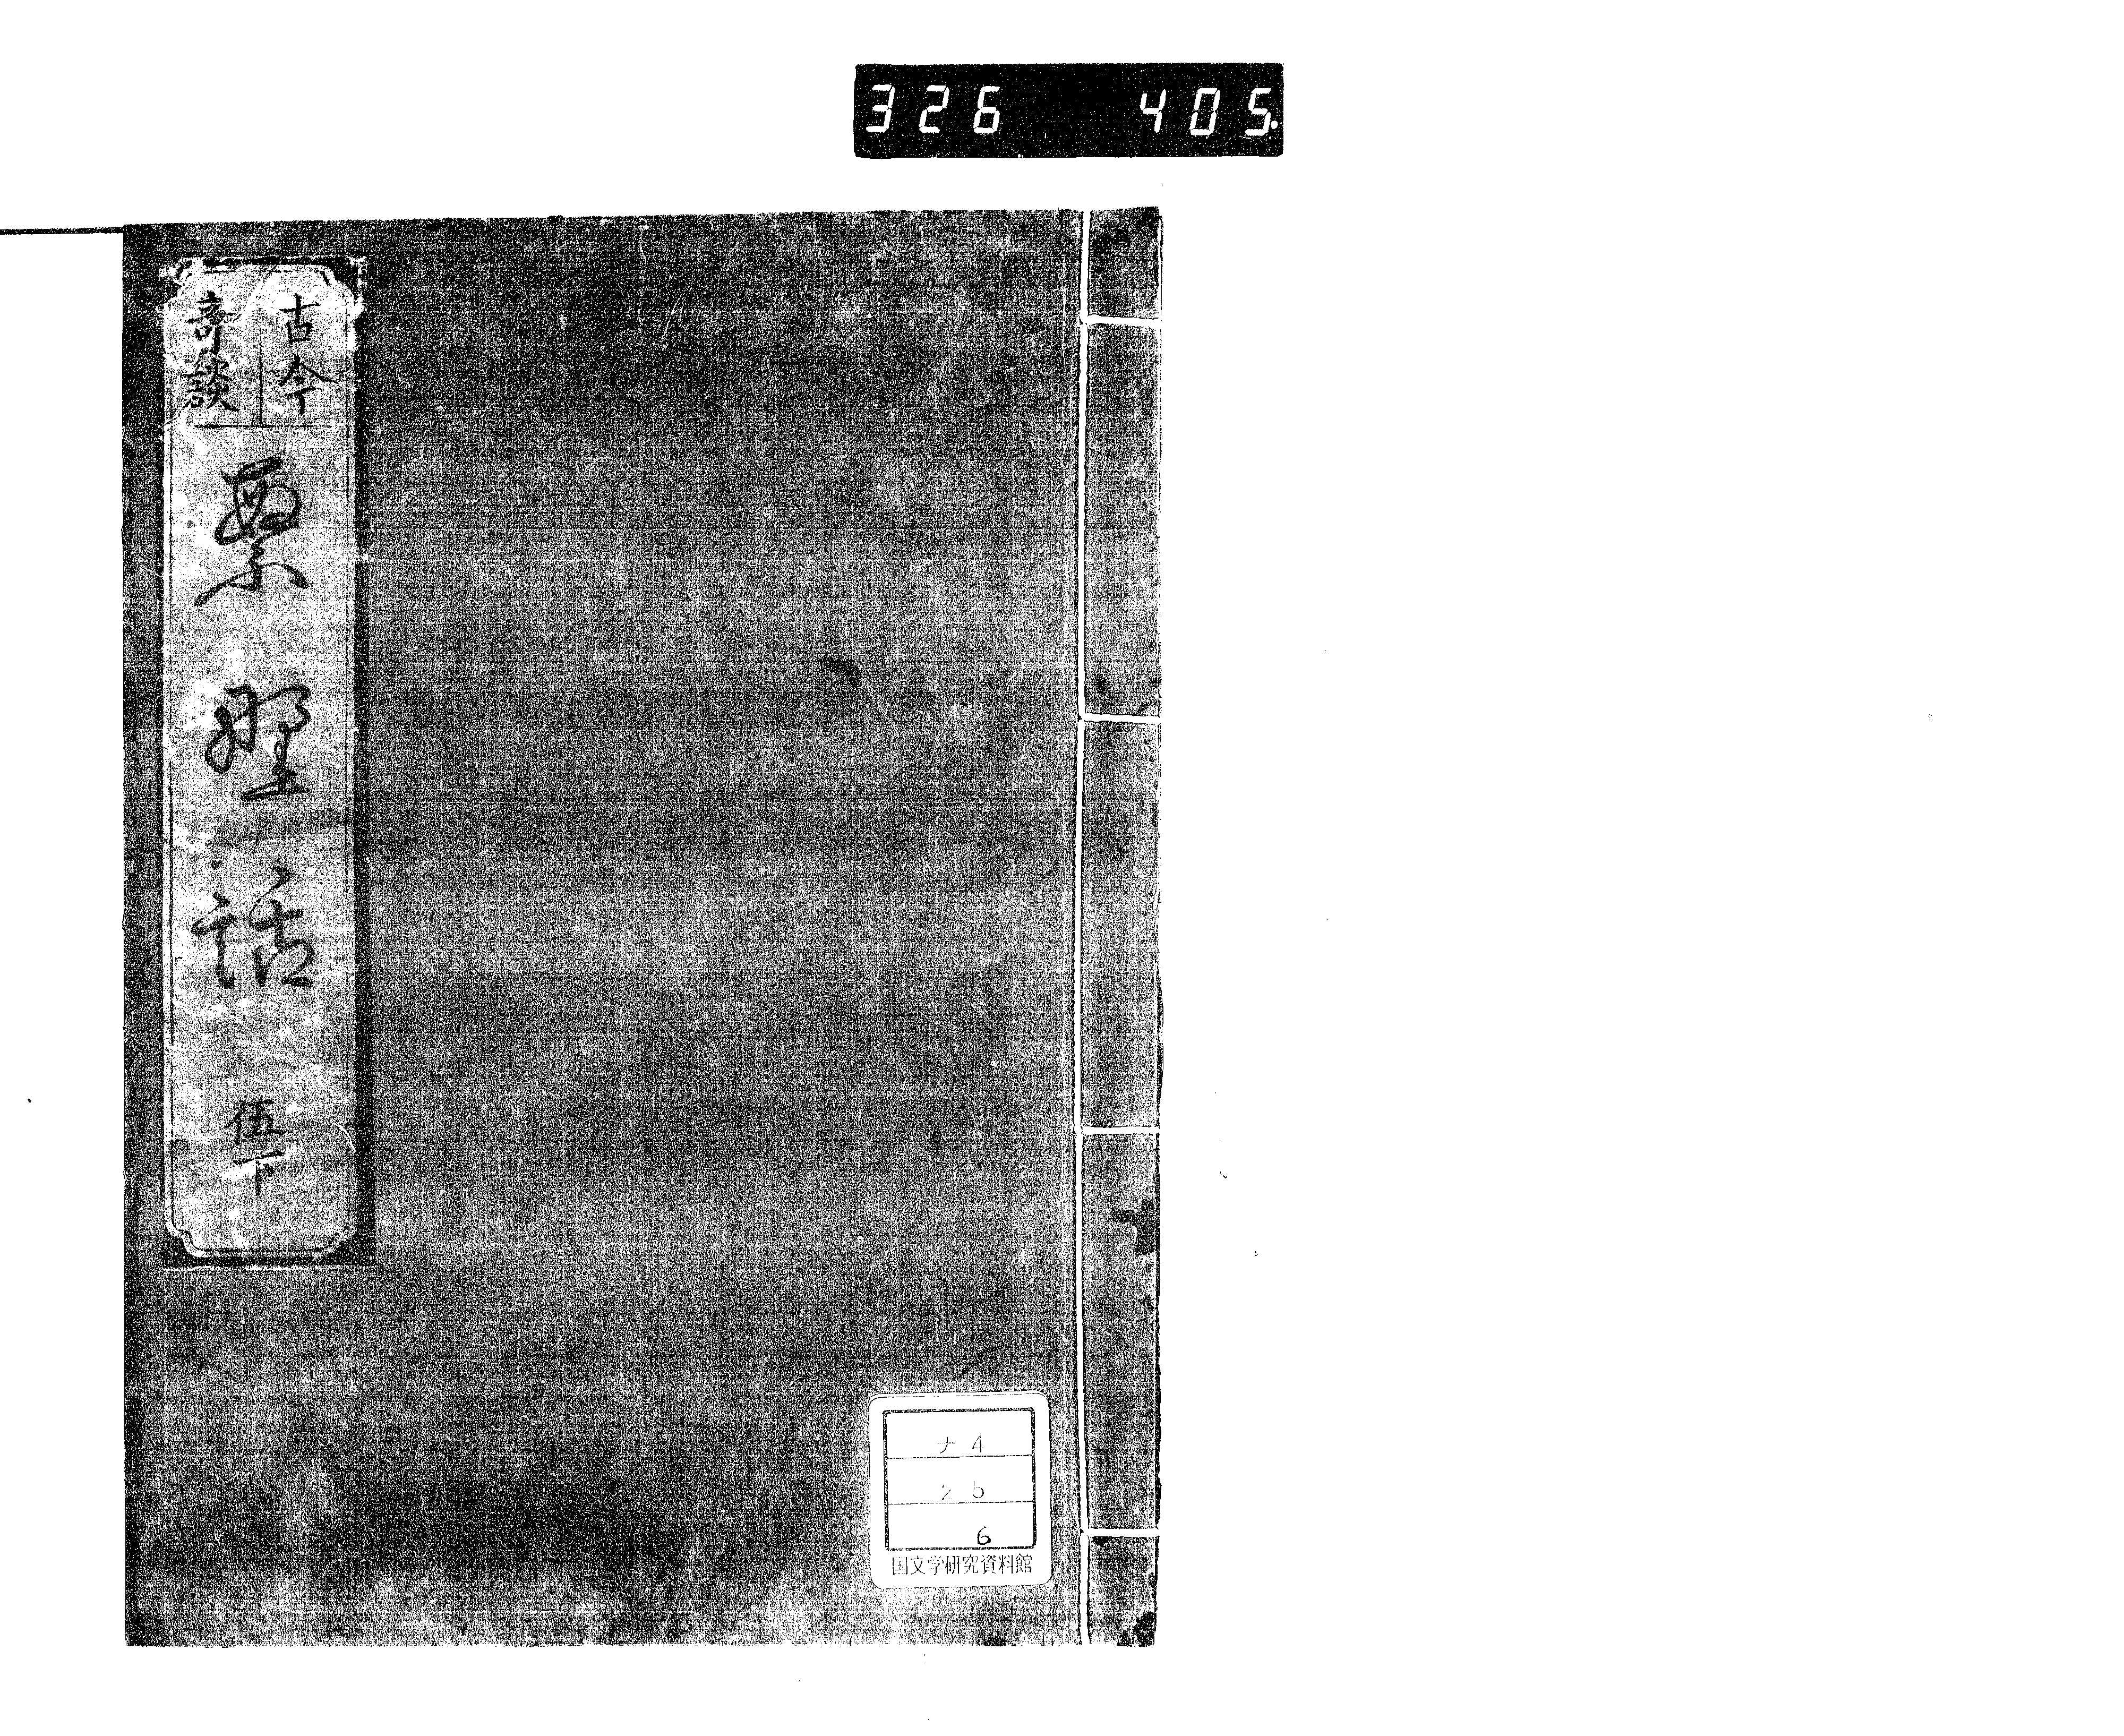 326 405.
古今
奇談
繁野話
伍下
ナ4
25
6
国文学研究資料館